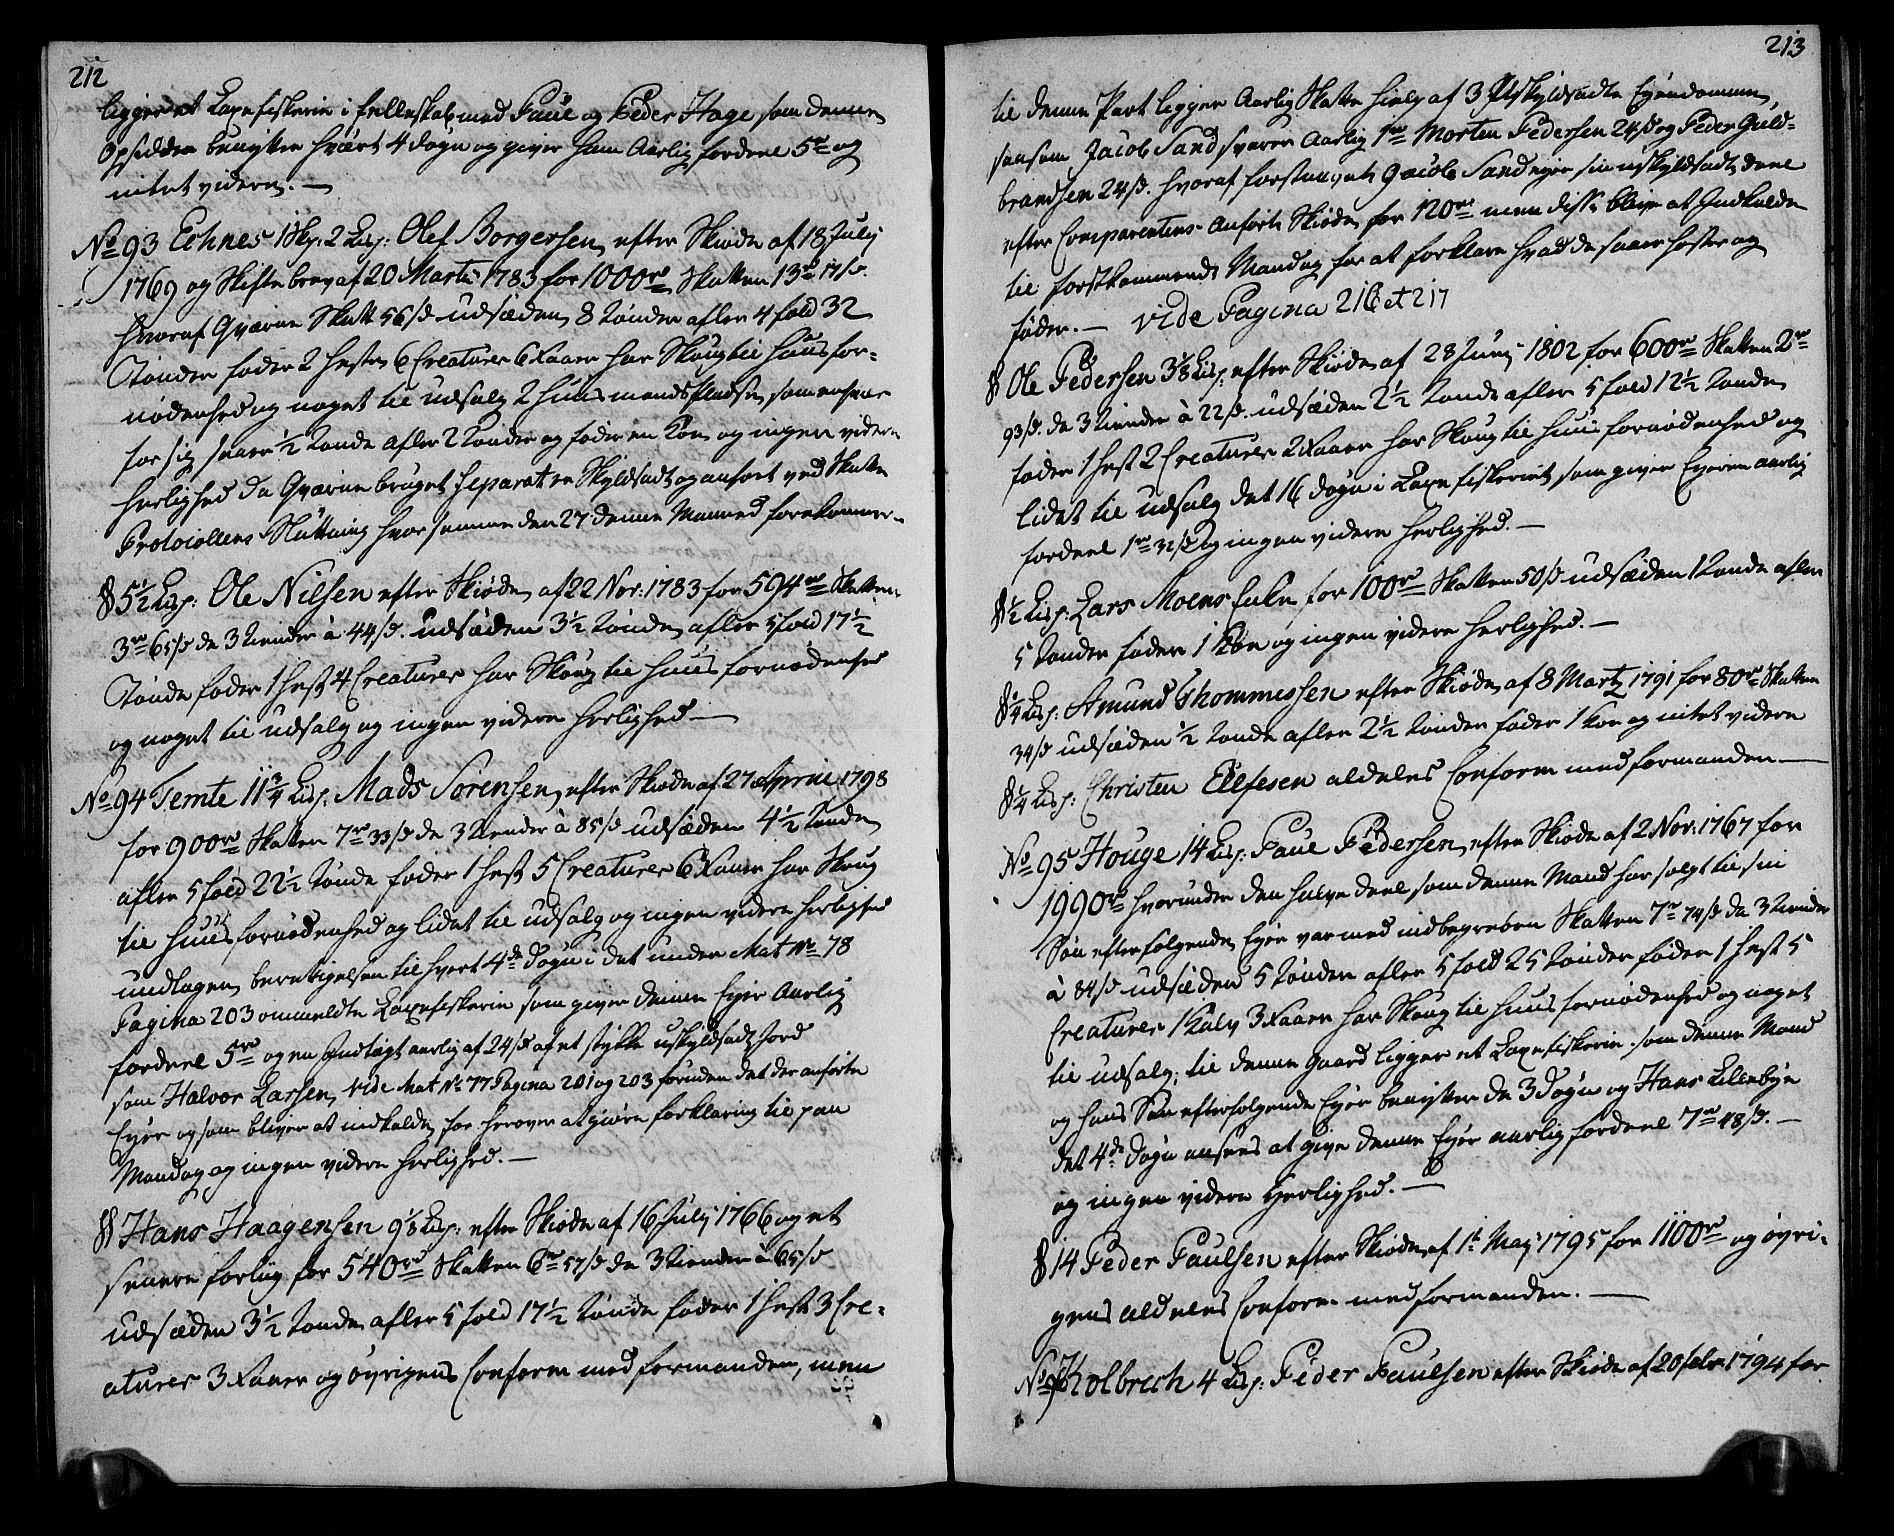 212
ligger et Laxefiskerie i felleskab med Paul og Peder Hage som denne
Opsidder benytter hvært 4 dogn og giver ham Aarlig fordeel 5rd og
intet videre. —
No 93 Echnes 1 Skp: 2 Lisp: Olef Borgersen efter Skiøde af 18 July
1769 og Skiftebrev af 20 Marti 1783 for 1000rd Skatten 13rd 17s
hvoraf Qværne Skatt 56s udsæden 8 tønder afler 4 fold 32
Tønder føder 2 heste 6 Creaturer 6 Faaer har Skoug til huus for=
nødenhed og noget til udsalg 2 huusmandspladse, som enhver
for sig saaer ½ tonde afler 2 Tonder og føder en Koe og ingen videre
herlighed da Qværne bruget separat er Skyldsadt og anført ved Skatte
Protocollens Slutning hvor samme den 27 denne Maaned forekommer.
§ 5½ Lisp: Ole Nilsen efter Skiøde af 22 Nov: 1783 for 594rd Skatten
3rd 65s de 3 tiender à 44s. udsæden 3½ tønde afler 5 fold 17½
Tønde føder 1 hest 4 Creaturer har Skoug til huus fornødenhed
og noget til udsalg og ingen videre herlighed —
No 94 Temte 11¾ Lisp. Mads Sørensen efter Skiøde af 27 April 1798
for 900rd Skatten 7rd 33s de 3 tiender à 85s udsæden 4½ tønde
afler 5 fold 22½ tønde føder 1 hest 5 Creaturer 6 Faaer har Skoug
til huus fornødenhed og lidet til udsalg og ingen videre herlighed
undtagen berettigelsen til hvert 4de dogn i det under Mat No 78
Pagina 203 ommeldte Laxefiskerie som giver denne Eyer Aarlig
fordeel 5rd og en Indtægt aarlig af 24s af et stykke uskyldsadt Jord
som Halvor Larsen, vide Mat No 77 Pagina 201 og 203 foruden det der anførte
Eyer og som bliver at indkalde for herover at giøre forklaring til paa
Mandag og ingen videre herlighed. —
§ Hans Haagensen 9⅛ Lisp: efter Skiøde af 16 July 1766 og et
senere forliig for 540rd Skatten 6rd 57s de 3 tiender à 65s
udsæden 3½ tonde afler 5 fold 17½ tønde føder 1 hest 3 Cre=
aturer 3 Faaer og øvrigens Conform med formanden, men
213
til denne Part ligger Aarlig Skatte hielp af 3 Uskyldsadte Eyendomme,
saasom Jacob Sand svarer Aarlig 1rd Morten Pedersen 24s og Peder Guld=
brandsen 24s. hvoraf forstnævnte Jacob Sand ejer sin uskyldsadte deel
efter Comparentens anførte Skiøde for 120rd men disse blive at Indkalde
til forstkommende Mandag for at forklare hvad de saaer høster og
føder. — vide Pagina 216 et 217
§ Ole Pedersen 3⅛ Lisp: efter Skiøde af 28 Juny 1802 for 600rd Skatten 2rd
93s. de 3 tiender à 22s. udsæden 2½ tonde afler 5 fold 12½ tonde
føder 1 hest 2 Creaturer 2 Faaer har Skoug til huus fornødenhed og
lidet til udsalg det 16 dogn i Laxefiskeriet som giver Eyeren aarlig
fordeel 1rd 32s og ingen videre herlighed. —
§ ½ Lisp: Lars Moens Enke for 100rd Skatten 50s udsæden 1 tonde afler
5 tonder føder 1 Koe og ingen videre herlighed. —
§ ¼ Lisp: Amund Thommessen efter Skiøde af 8 Marty 1791 for 80rd Skatten
34s udsæden ½ tonde afler 2½ tonder føder 1 Koe og intet videre
§ ¼ Lisp: Christen Ellefsen aldeles Conform med formanden —
No 95 Houge 14 Lisp: Paul Pedersen efter Skiøde af 2 Nov: 1767 for
1990rd hvorunder den halve deel som denne Mand har solgt til sin
Søn efterfølgende Eyer var med indbegreben Skatten 7rd 74s de 3 tiender
à 84s udsæden 5 tønder afler 5 fold 25 tønder føder 1 hest 5
Creaturer 1 Kalv 3 Faaer har Skoug til huus fornødenhed og noget
til udsalg; til denne Gaard ligger et Laxefiskerie som denne Mand
og hans Søn efterfølgende Eyer benytter de 3 dogn og Hans Lillebye
det 4de dogn ansees at give denne Eyer aarlig fordeel 7rd 48s. —
og ingen videre herlighed. —
§ 14 Peder Paulsen efter Skiøde af 1t May 1795 for 1100rd og øvri=
gens aldeles Conform med formanden. —
No 96 Kolbrech 4 Lisp: Peder Paulsen efter Skiøde af 20 febr 1794 for